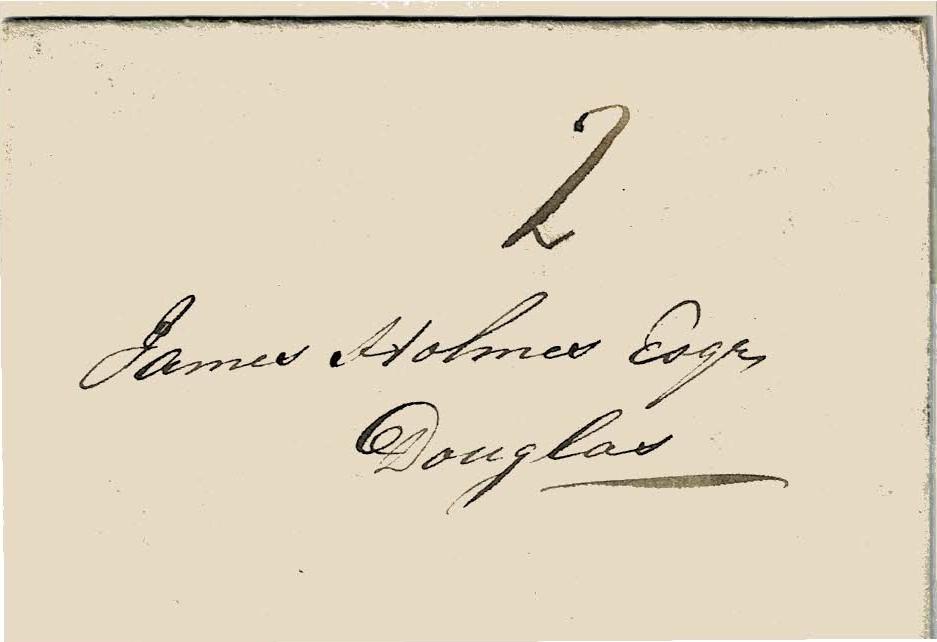 2
James Holmes Esqr,
Douglas